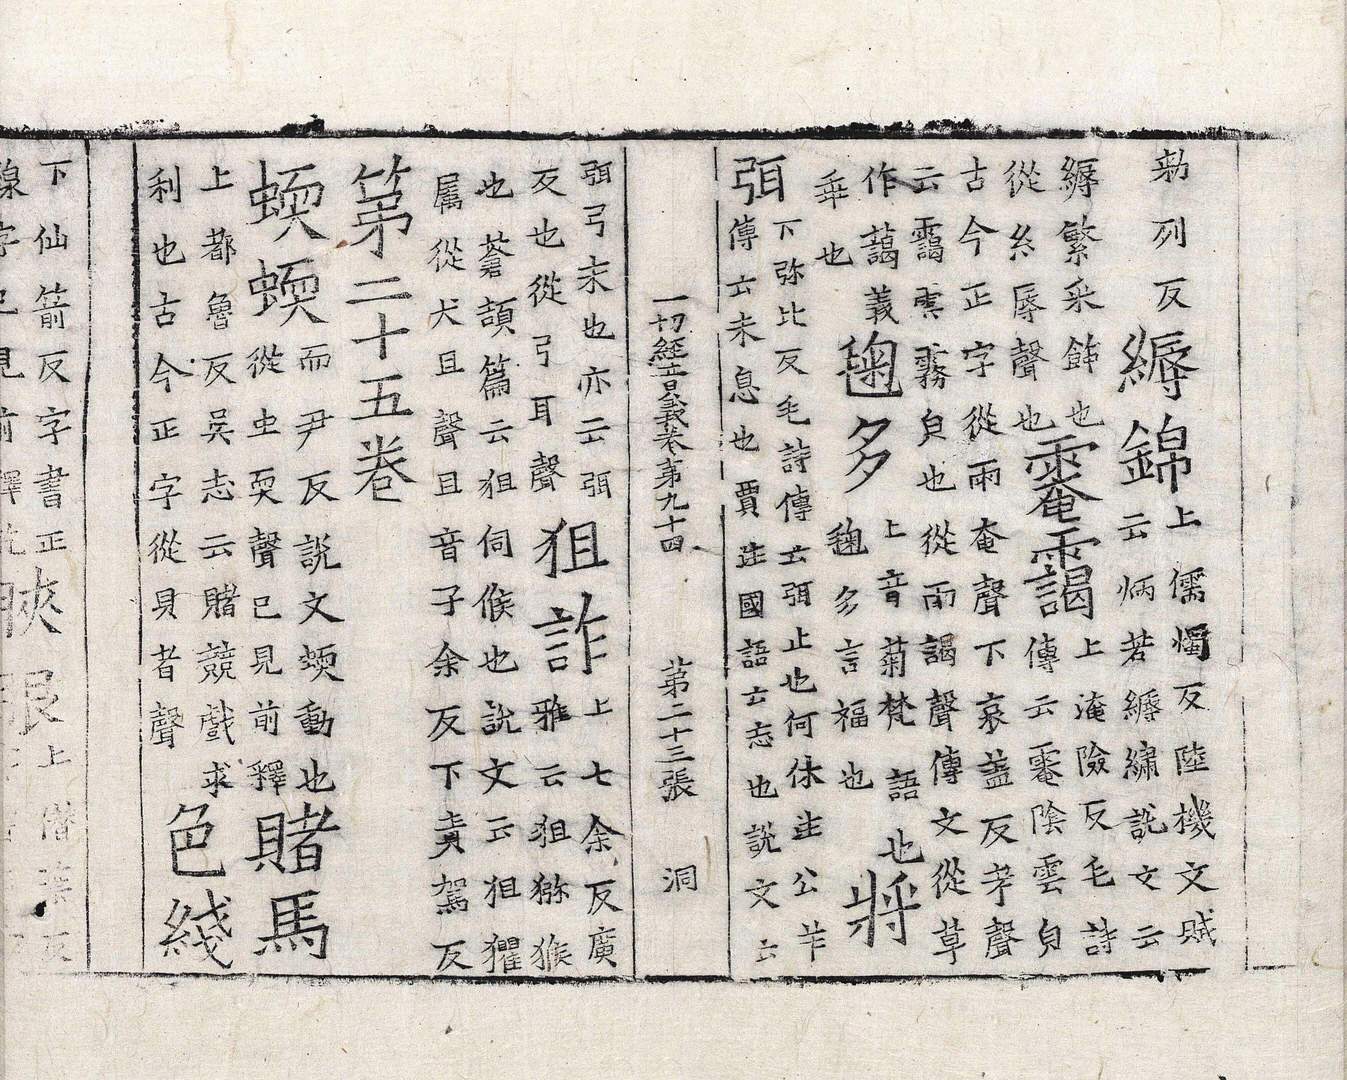 勑列反
縟錦
上儒燭反陸機文賦
云炳若縟繡說文云
縟繁采飾也
從糸辱聲也
䨄靄
上淹險反毛詩
傳云䨄陰雲皃
古今正字從雨奄聲下哀蓋反考聲
云靄雲霧皃也從雨謁聲傳文從草
作藹義
乖也
毱多
上音菊梵語也
毱多言福也
將
弭
下弥比反毛詩傳云弭止也何休注公羊
傳云未息也賈逵國語云志也說文云
一切經音義卷第九十四 第二十三張 洞
弭弓末也亦云弭
反也從弓耳聲
狙詐
上七余反廣
雅云狙猕猴
也蒼頡篇云狙伺候也說文云狙玃
屬從犬且聲且音子余反下責駕反
第二十五卷
蝡蝡
而尹反說文蝡動也
從虫耎聲已見前釋
賭馬
上都魯反吳志云賭競戲求
利也古今正字從貝者聲
色綫
下仙箭反字書正
線字已見前釋訖
䀹眼
上僭葉反